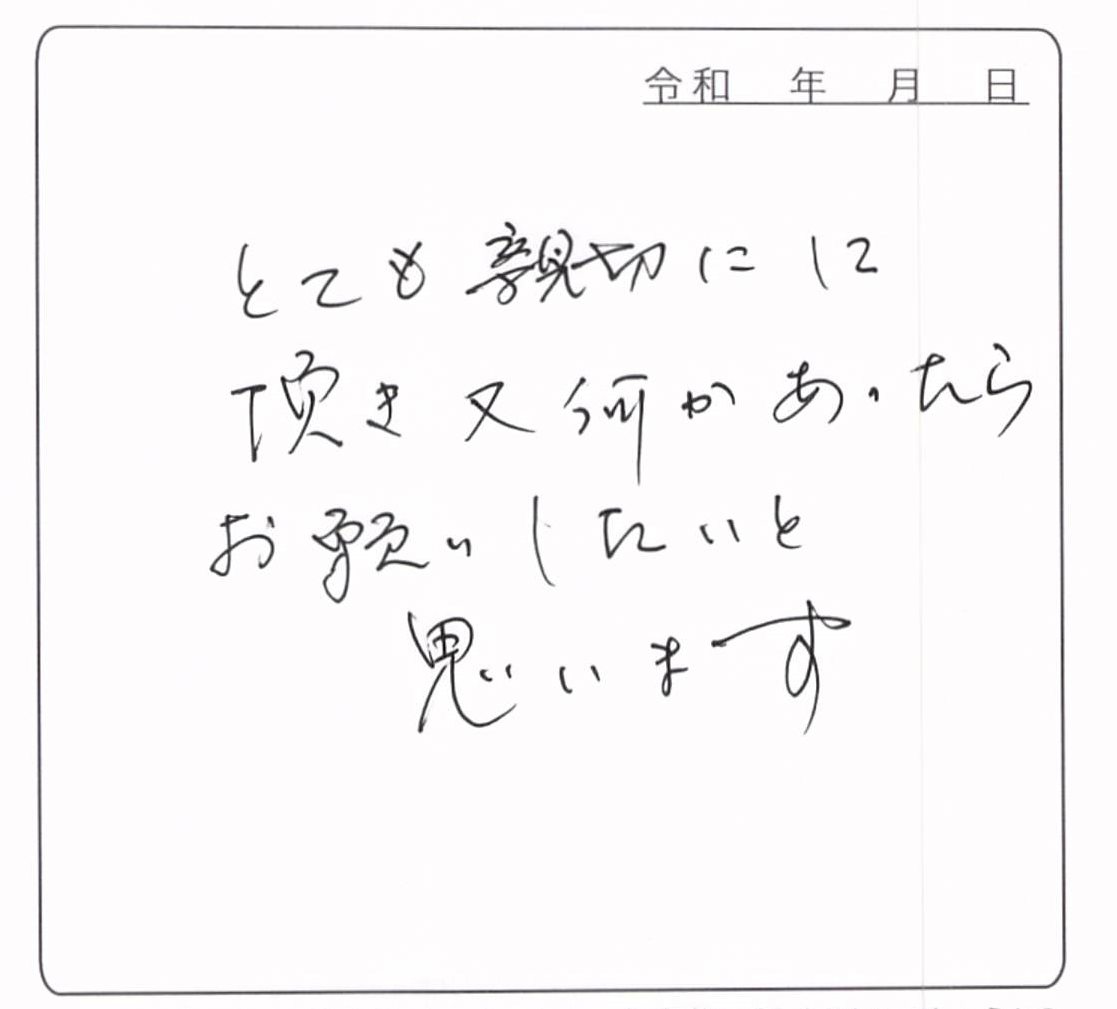 令和　年　月　日
とても親切にに
頂き又何かあったら
お願いしたいと
思います